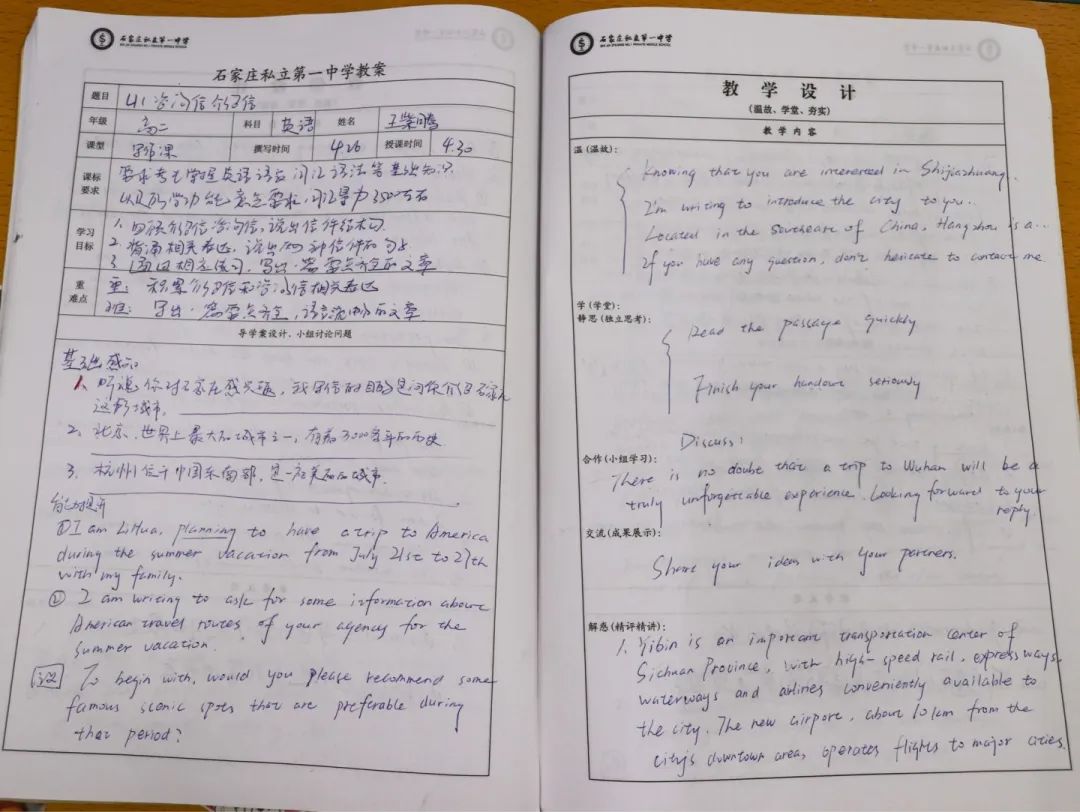 石家庄私立第一中学
SHI JIA ZHUANG NO.1 PRIVATE MIDDLE SCHOOL
石家庄私立第一中学教案
题目 U1 咨询信介绍信
年级 高二 科目 英语 姓名 王紫鹏
课型 写作课 撰写时间 4.26 授课时间 4.30
课标要求 要求考生掌握英语语言词汇语法等基础知识
以及所学功能意念要求,词汇量为3500左右
学习目标 1. 回顾介绍信咨询信,说出信件结构
2. 背诵相关表达,说出两种信件的句子
3. 通过相应练习,写出一篇要点齐全的文章
重难点 重: 积累介绍信和咨询信相关表达
难: 写出一篇要点齐全,语言流畅的文章
导学案设计、小组讨论问题
基础感知
1. 听说你对石家庄感兴趣,我写信的目的是向你介绍石家庄
这所城市.
2. 北京,世界上最大的城市之一,有着3000多年的历史
3. 杭州位于中国东南部,是一座美丽的城市.
能力提升
① I am LiHua, planning to have a trip to America
during the summer vacation from July 21st to 27th
with my family.
② I am writing to ask for some information about
American travel routes of your agency for the
summer vacation.
To begin with, would you please recommend some
famous scenic spots that are preferable during
that period?
石家庄私立第一中学
SHI JIA ZHUANG NO.1 PRIVATE MIDDLE SCHOOL
教 学 设 计
(温故、学堂、夯实)
教 学 内 容
温(温故):
Knowing that you are interested in Shijiazhuang...
I'm writing to introduce the city to you..
Located in the southeast of China, Hangzhou is a...
If you have any question, don't hesitate to contact me
学(学堂):
静思(独立思考):
Read the passage quickly
Finish your handout seriously
Discuss:
合作(小组学习):
There is no doubt that a trip to Wuhan will be a
truly unforgettable experience. Looking forward to your
reply.
交流(成果展示):
Share your ideas with your partners.
解惑(精评精讲):
1. Yibin is an important transportation center of
Sichuan Province, with high-speed rail, expressways,
waterways and airlines conveniently available to
the city. The new airport, about 10 km from the
city's downtown area, operates flights to major cities.